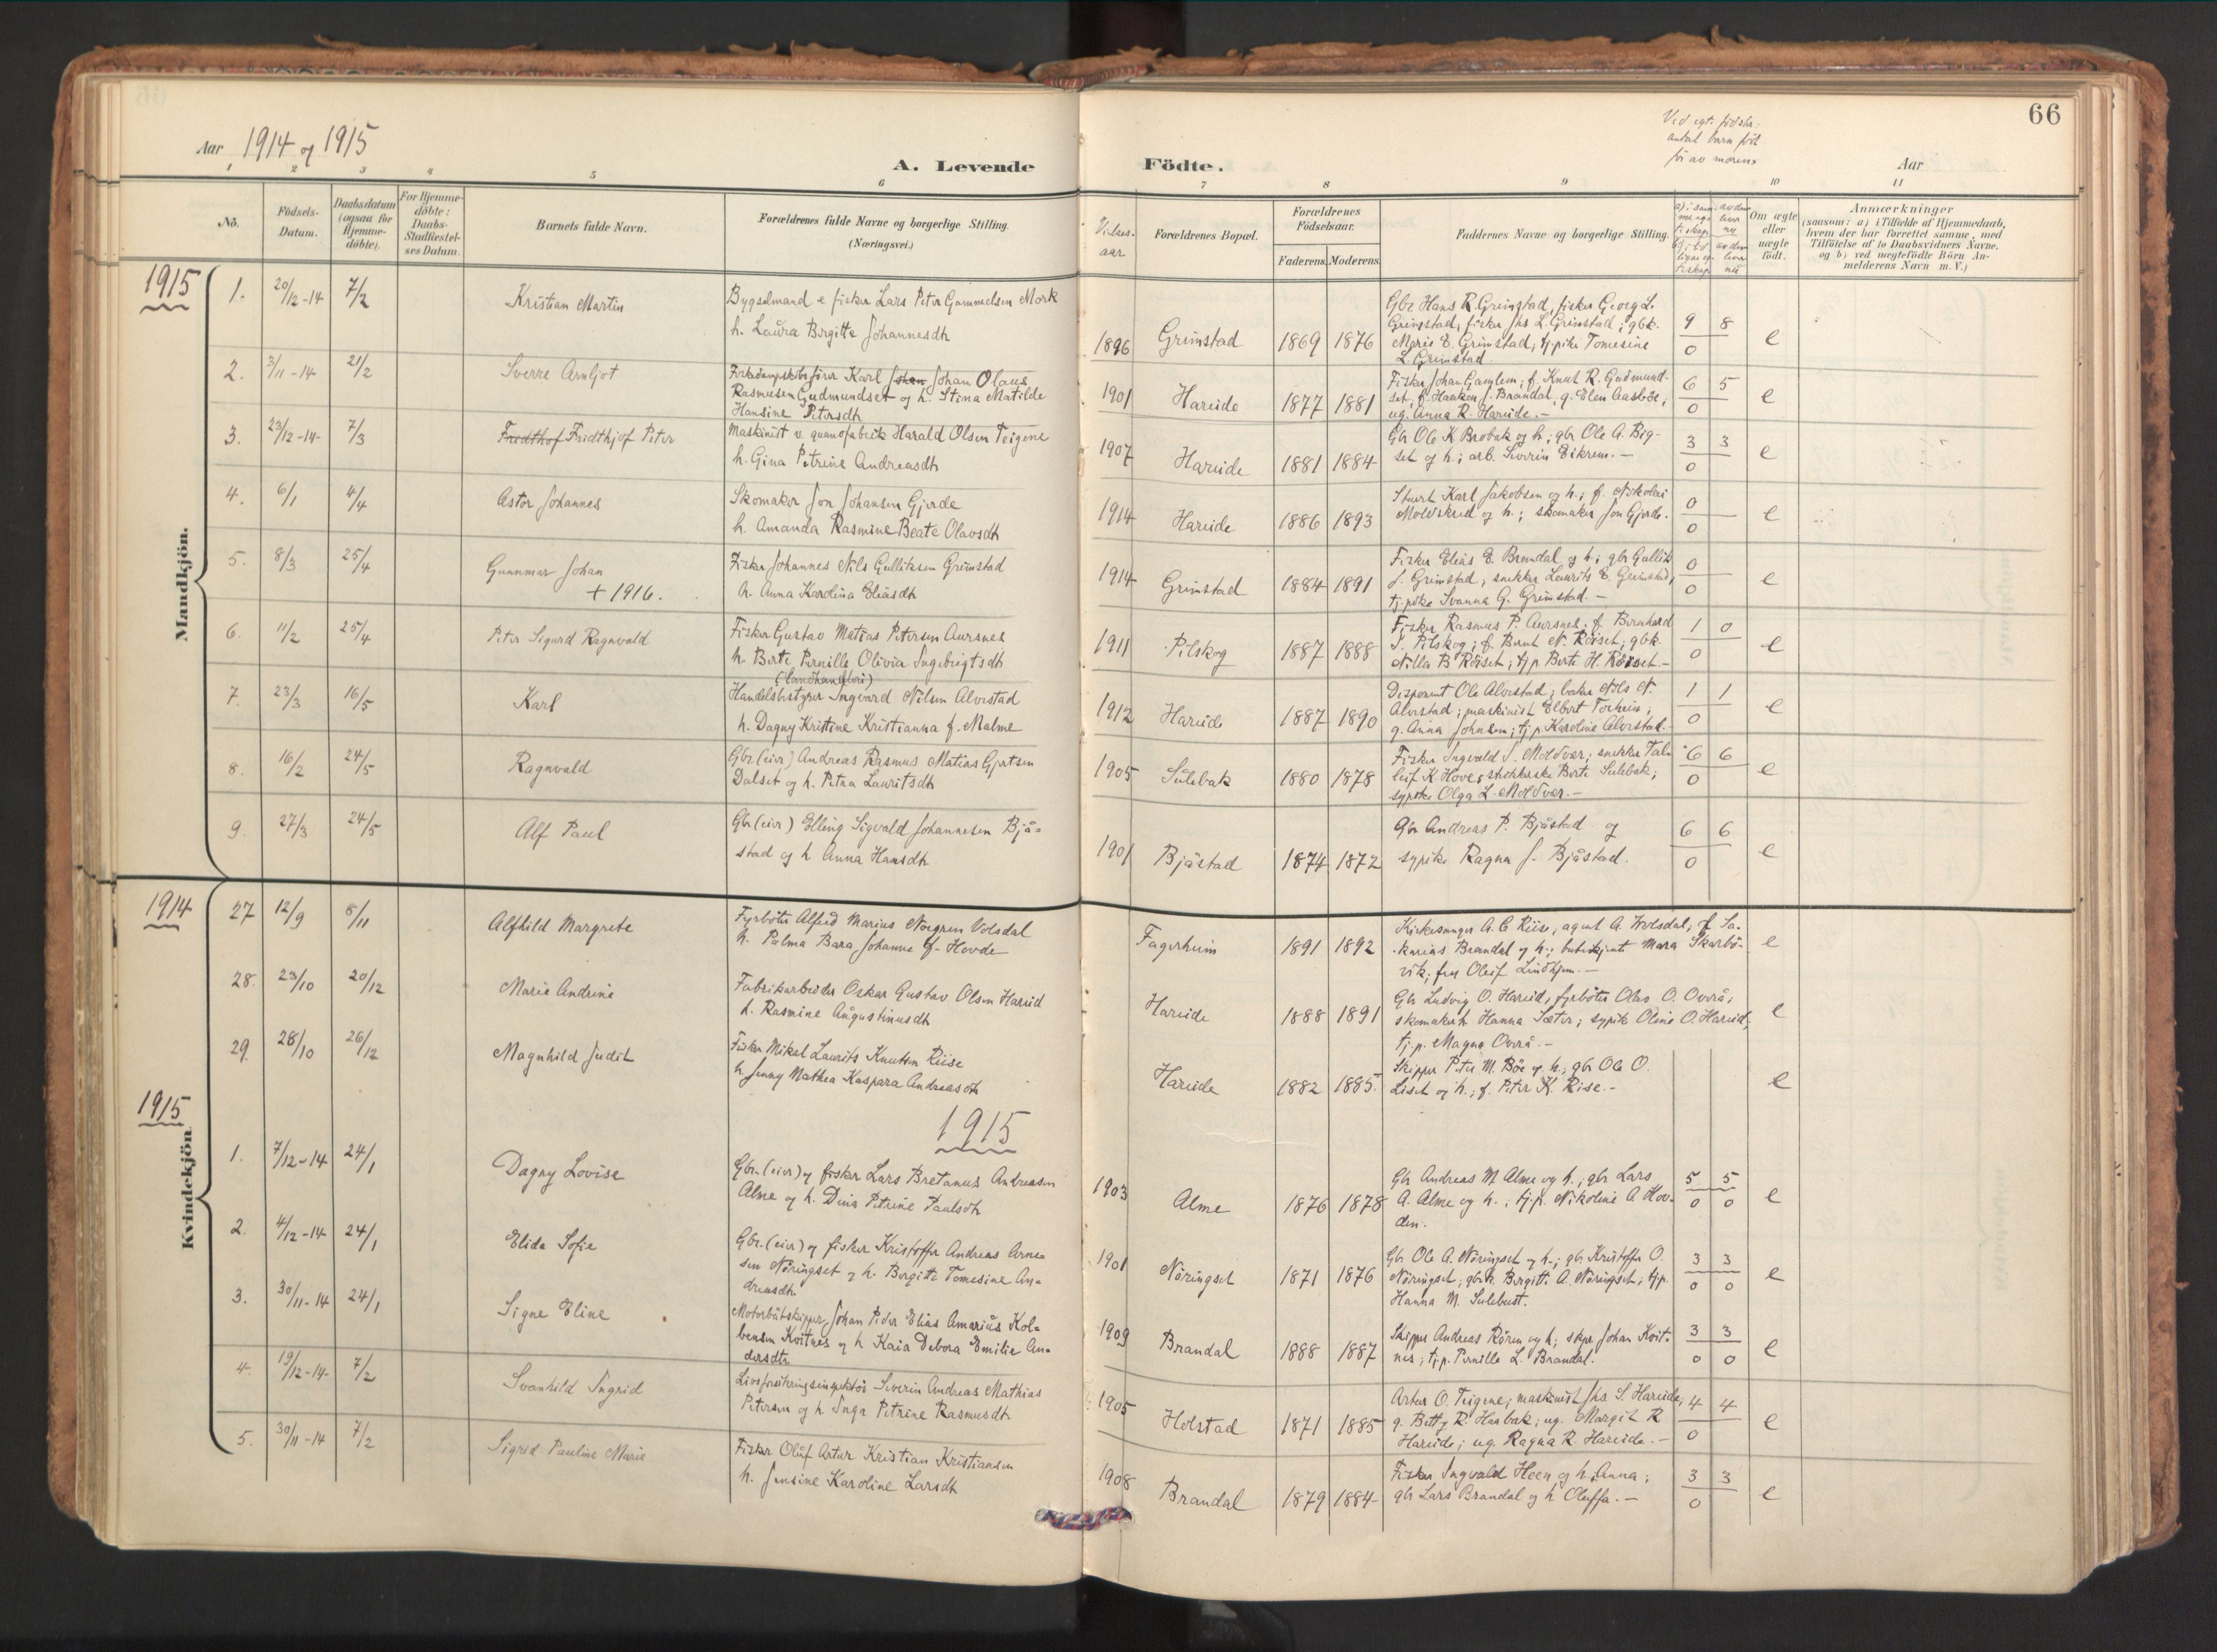 66
Aar 1914 og 1915
A. Levende Födte.
Aar
1 2 3 4 5 6 7 8 9 10 11
No.
Födsels-
Datum.
Daabsdatum
(ogsaa for
Hjemme-
döbte).
For Hjemme-
döbte:
Daabs-
Stadfæstel-
ses Datum.
Barnets fulde Navn.
Forældrenes fulde Navne og borgerlige Stilling.
(Næringsvei.)
Forældrenes Bopæl.
Forældrenes
Födselsaar.
Faderens. Moderens.
Faddernes Navne og borgerlige Stilling.
Om ægte
eller
uægte
födt.
Anmærkninger
(saasom: a) i Tilfælde af Hjemmedaab,
hvem der har forrettet samme, med
Tilföielse af to Daabsvidners Navne,
og b) ved uægtefödte Börn An-
melderens Navn m. V.)
Mandkjön.
1915
1. 20/12-14 7/2 Kristian Martin
Bygselmand e fisker Lars Peter Gammelsen Mork
h. Laura Birgitte Johannesdtr
1896 Grimstad 1869 1876
Gbr Hans R. Grimstad, fisker Georg L.
Grimstad, fisker Jhs L. Grimstad; gbk.
Marie E. Grimstad; tj.pike Tomesine
L. Grimstad
9 8
0
e
2. 3/11-14 21/2 Sverre Arnljot
Karl Johan Johan Olaus
Rasmusen Gudmundset og h. Stina Matilde
Hansine Petersdtr
1901 Hareide 1877 1881
Fisker Johan Gamlem; f. Knut R. Gudmund-
set, f. Haakon J. Brandal, g. Elen Aasböe;
ug. Anna R. Hareide.-
6 5
0
e
3. 23/12-14- 7/3 Fridthof Fridthjof Peter
Maskinist v. guanofabrik Harald Olsen Teigene
h. Gina Petrine Andreasdtr
1907 Hareide 1881 1884
Gbr Ole K Brobak og h; gbr Ole A. Big-
set og h; arb. Severin Eikrem.-
3 3
0
e
4. 6/1 4/4 Astor Johannes
Skomaker Jon Johansen Gjerde
h. Amanda Rasmine Beate Olavsdtr
1914 Hareide 1886 1893
Stuert Karl Jakobsen og h.; f. Nikolai
Moldskred og h.; skomaker Jon Gjerde.
0
0
e
5. 8/3 25/4 Gunnmar Johan
+ 1916.
Fisker Johannes Nils Gulliksen Grimstad
h. Anna Karolina Eliasdtr
1914 Grimstad 1884 1891
Fisker Elias E. Brandal og h; gbr Gullik
J. Grimstad, snekker Laurits E. Grimstad,
tj.pike Svanna G. Grimstad.-
0
0
e
6. 11/2 25/4 Peter Sigurd Ragnvald
Fisker Gustav Matias Petersen Aursnes
h. Berte Pernille Olivia Ingebrigtsdtr
1911 Pilskog 1887 1888
Fisker Rasmus P. Aursnes; f. Bernhard
S. Pilskog; f. Bernt N. Röiset; gbk.
Nilla B Röiset; tj.p Berte H. Röiset.-
1 0
0
e
7. 23/3 16/5 Karl
(landhandleri)
Handelsbestyrer Ingvard Nilsen Alvestad
h. Dagny Kristine Kristianna f. Malme
1912 Hareide 1887 1890
Disponent Ole Alvestad; baker Nils N.
Alvestad; maskinist Elbert Torheim;
g. Anna Johnsen; tj.p. Karoline Alvestad.-
1 1
0
e
8. 16/2 24/5 Ragnvald
Gbr (eier) Andreas Rasmus Matias Gjertsen
Dalset og h. Petra Lauritsdtr
1905 Sulebak 1880 1878
Fisker Ingvald S. Moldver; snekker Tal-
leif K Hove; Berte Sulebak;
sypike Olga L. Moldver.-
6 6
0
e
9. 27/3 24/5 Alf Paul
Gbr (eier) Elling Sigvald Johannesen Bjå-
stad og h Anna Hansdtr
1901 Bjåstad 1874 1872
Gbr Andreas P. Bjåstad og
sypike Ragna J. Bjåstad.
6 6
0
e
Kvindekjön
1914
27 12/9 8/11 Alfhild Margrete
Fyrböter Alfred Marius Norgren Volsdal
h. Palma Bara Johanne f. Hovde
Fagerheim 1891 1892
Kirkesanger A. C Riise, agent A. Wolsdal, f Sa-
karias Brandal og h; Mara Skarbö-
vik; fru Oleif Lindhjem.-
e
28. 23/10 20/12 Marie Andrine
Fabrikarbeider Oskar Gustav Olsen Hareid
h. Rasmine Augustinusdtr
Hareide 1888 1891
Gbr Ludvig O. Hareid, fyrböter Olav O. Overå,
skomakerh Hanna Sæter; sypike Oline O. Hareid;
tj.p. Magna Overå.-
e
29. 28/10 26/12 Magnhild Judit
Fisker Mikal Laurits Knutsen Riise
h. Jenny Mathea Kaspara Andreasdtr
Hareide 1882 1885.
Skipper Peter M. Böe og h; gbr Ole O.
Liset og h.; f. Peter K. Rise.-
e
1915
1915
1. 7/12-14 24/1 Dagny Lovise
Gbr.(eier) og fisker Lars Bretanus Andreasen
Alme og h. Dina Petrine Paulsdtr
1903 Alme 1876 1878
Gbr Andreas M. Alme og h., gbr Lars
A. Alme og h., tj.p. Nikoline A Hov-
den.
5 5
0 0
e
2. 4/12-14 24/1 Elida Sofie
Gbr.(eier) og fisker Kristoffer Andreas Arne-
sen Nöringset og h. Bergitte Tomesine An-
dreasdtr
1901 Nöringset 1871 1876
Gbr Ole A. Nöringset og h; gbr Kristoffer O.
Nöringset; gbr.h. Birgitte A. Nöringset, tj.p.
Hanna M. Sulebust.
3 3
0 0
e
3. 30/11-14 24/1 Signe Eline
Motorbåtskipper Johan Peder Elias Amarius Kol-
bensen Kvitnes og h Kaia Debora Emilie An-
dersdtr
1909 Brandal 1888 1887
Skipper Andreas Rören og h; skpr Johan Kvit-
nes; tj.p. Pernille L. Brandal.
3 3
0 0
e
4. 19/12-14- 7/2 Svanhild Ingrid
Livsforsikringsinspektör Severin Andreas Mathias
Petersen og h Inga Petrine Rasmusdtr
1905 Holstad 1871 1885
Artur O. Teigene; maskinist Jhs S. Hareide,
g. Betty R. Haabak; ug. Margit R
Hareide; ug. Ragna R. Hareide.-
4 4
0
e
5. 30/11-14 7/2 Sigrid Pauline Marie
Fisker Oluf Artur Kristian Kristiansen
h. Jensine Karoline Larsdtr
1908 Brandal 1879 1884
Fisker Ingvald Heen og h. Anna;
gbr Lars Brandal og h Oluffa.-
3 3
0
e